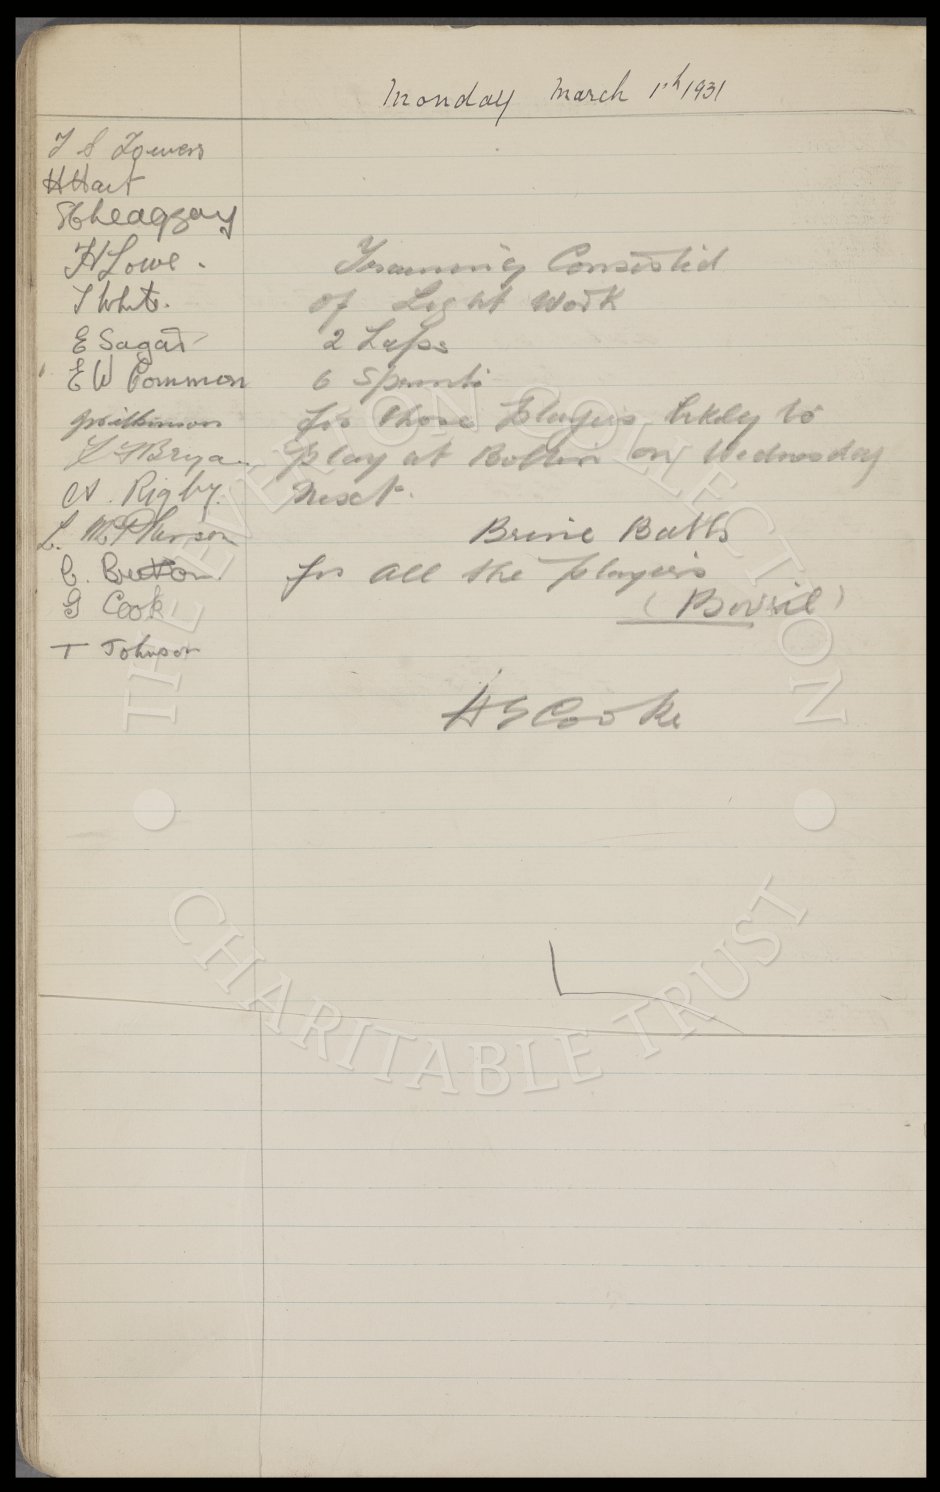 Monday March 1th 1931
H Hart
H Lowe.
T White.
E Sagar
E W Common
J Wilkinson
A. Rigby.
L. McPherson
C. Britton.
G Cook
T Johnson
Training Consisted
of Light Work
2 Laps
6 Sprints
for those players likely to
play at Bolton on Wednesday
next.
Brine Baths
for all the players
(Bovril)
H E Cooke
THE EVERTON COLLECTION
CHARITABLE TRUST